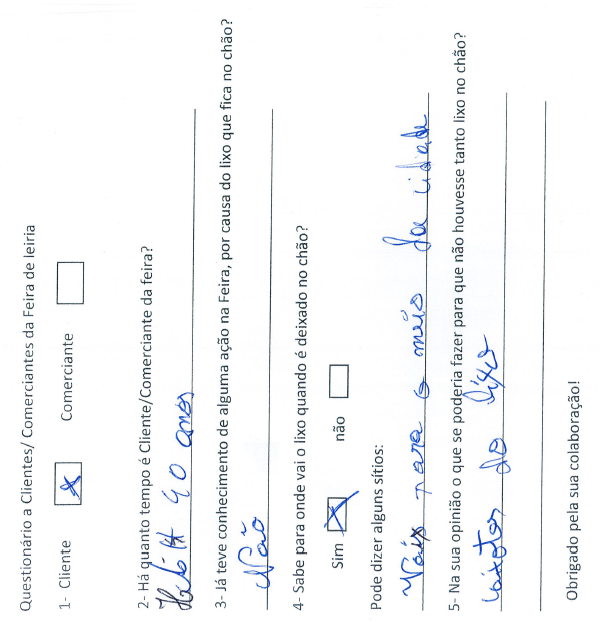 Questionário a Clientes/ Comerciantes da Feira de leiria
1- Cliente Comerciante
2- Há quanto tempo é Cliente/Comerciante da feira?
40 anos
3- Já teve conhecimento de alguma ação na Feira, por causa do lixo que fica no chão?
Não
4- Sabe para onde vai o lixo quando é deixado no chão?
Sim não
Pode dizer alguns sítios:
para o meio da cidade
5- Na sua opinião o que se poderia fazer para que não houvesse tanto lixo no chão?
caixotes do lixo
Obrigado pela sua colaboração!